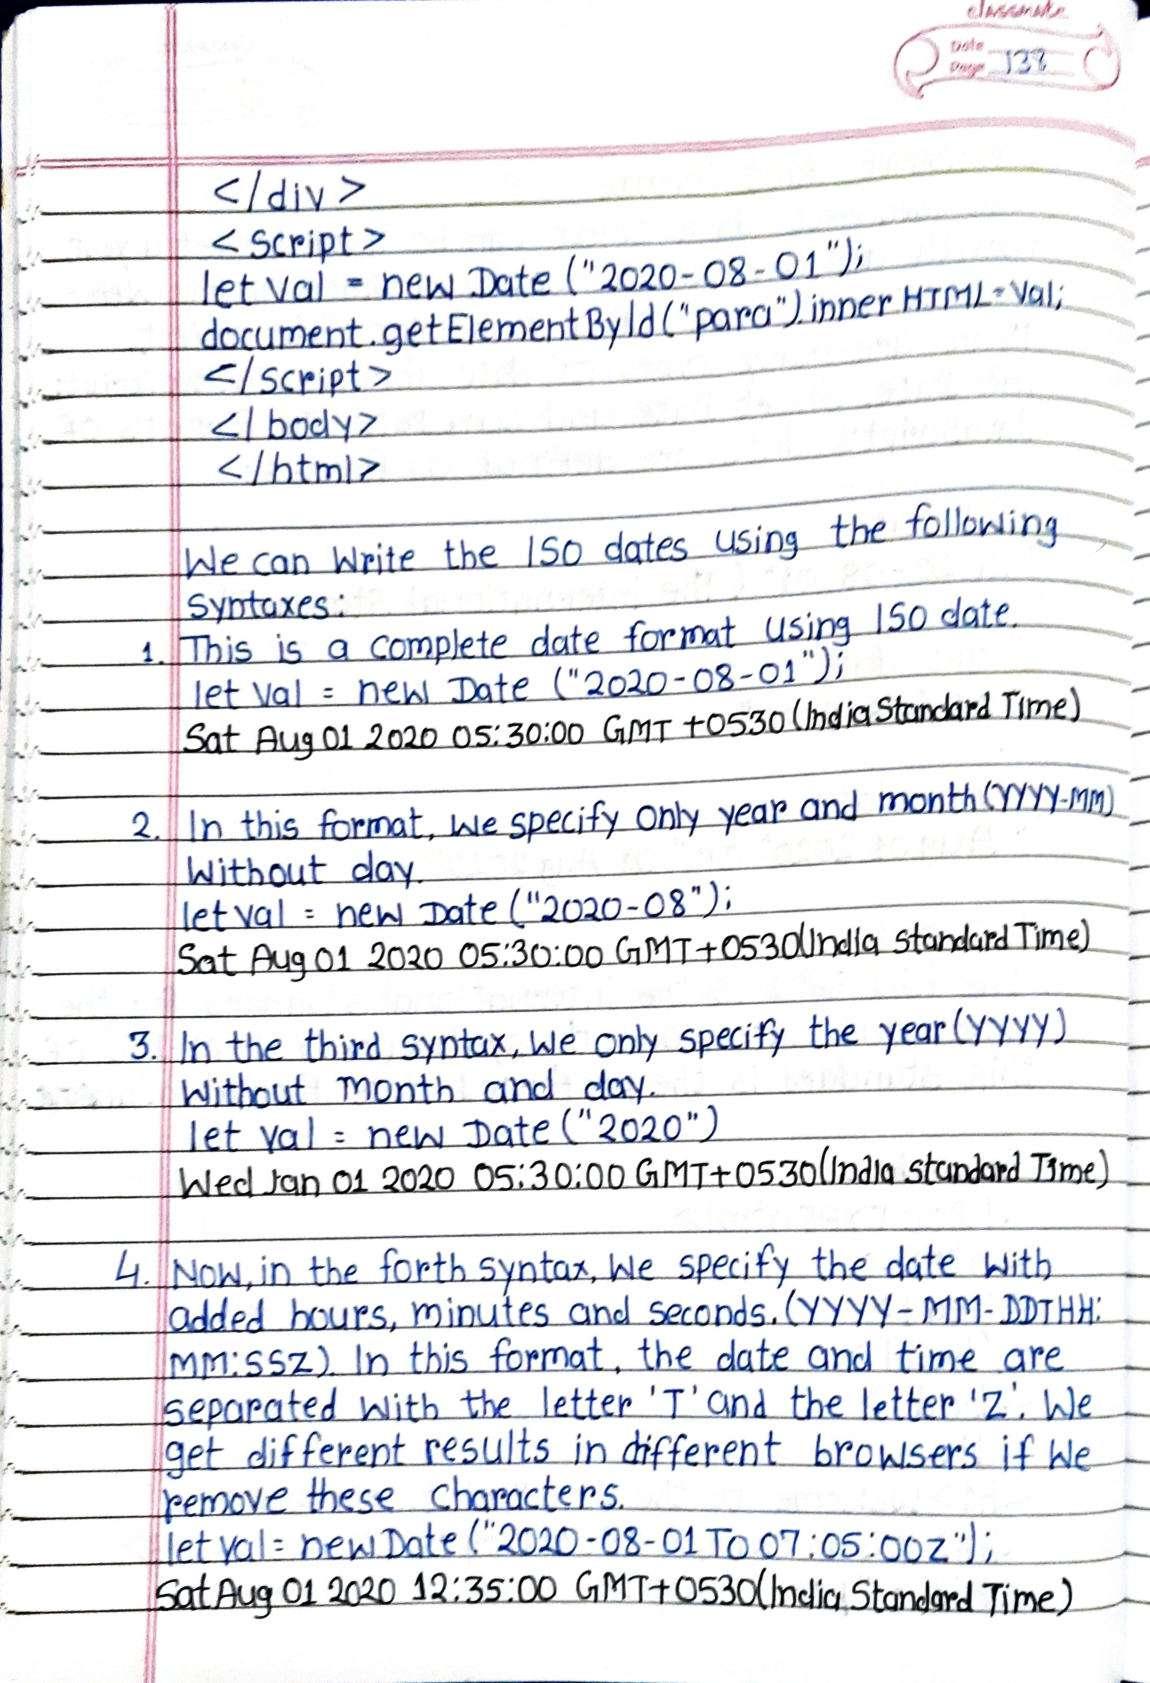 classmate
Date
Page 138
</div>
<script>
let val = new Date ("2020-08-01");
document.getElementById("para").innerHTML=val;
</script>
</body>
</html>
We can write the ISO dates using the following
syntaxes:
1. This is a complete date format using ISO date.
let val = new Date ("2020-08-01");
Sat Aug 01 2020 05:30:00 GMT +0530 (India Standard Time)
2. In this format, we specify only year and month (YYYY-MM)
without day.
let val = new Date ("2020-08");
Sat Aug 01 2020 05:30:00 GMT+0530(India standard Time)
3. In the third syntax, we only specify the year (YYYY)
without month and day.
let val = new Date ("2020")
Wed Jan 01 2020 05:30:00 GMT+0530(India standard Time)
4. Now, in the forth syntax, we specify the date with
added hours, minutes and seconds. (YYYY-MM-DDTHH:
MM:SSZ). In this format, the date and time are
separated with the letter 'T' and the letter 'Z'. We
get different results in different browsers if we
remove these characters.
let val = new Date ("2020-08-01T007:05:00Z");
Sat Aug 01 2020 12:35:00 GMT+0530(India Standard Time)